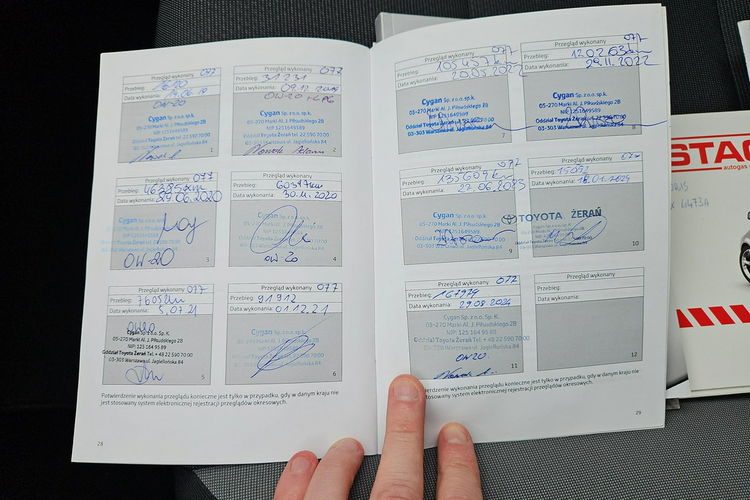 Przegląd wykonany 077
Przebieg:
Data wykonania:
OW-20
Cygan Sp. z o.o. sp.k.
05-270 Marki Al. J. Piłsudskiego 2B
NIP 1251649589
03-303 Warszawa ul. Jagiellońska 84
1
Przegląd wykonany 077
Przebieg: 31231
Data wykonania: 09.12.2019
OW-20
Cygan Sp. z o.o. sp.k.
05-270 Marki Al. J. Piłsudskiego 2B
NIP 1251649589
Oddział Toyota Żerań Tel. + 48 22 590 70 00
03-303 Warszawa ul. Jagiellońska 84
2
Przegląd wykonany 077
Przebieg: 46385km
Data wykonania: 29.06.2020
OW-20
3
Przegląd wykonany 077
Przebieg: 60517km
Data wykonania: 30.11.2020
OW-20
4
Przegląd wykonany 077
Przebieg: 76052km
Data wykonania: 5.07.21
OW20
Cygan Sp. z o.o. Sp. K.
05-270 Marki Al. J. Piłsudskiego 2B
NIP: 125 164 95 89
Oddział Toyota Żerań Tel. + 48 22 590 70 00
03-303 Warszawa ul. Jagiellońska 84
5
Przegląd wykonany 077
Przebieg: 91912
Data wykonania: 01.12.21
Cygan Sp. z o.o. Sp. K.
05-270 Marki Al. J. Piłsudskiego 2B
NIP: 125 164 95 89
Oddział Toyota Żerań Tel. + 48 22 590 70 00
03-303 Warszawa ul. Jagiellońska 84
6
Potwierdzenie wykonania przeglądu konieczne jest tylko w przypadku, gdy w danym kraju nie
jest stosowany system elektronicznej rejestracji przeglądów okresowych.
28
Przegląd wykonany 077
Przebieg: 105457km
Data wykonania:
Cygan Sp. z o.o. sp.k.
05-270 Marki Al. J. Piłsudskiego 2B
NIP 1251649589
Oddział Toyota Żerań Tel. + 48 22 590 70 00
03-303 Warszawa ul. Jagiellońska 84
7
Przegląd wykonany 077
Przebieg: 120263km
Data wykonania: 29.11.2022
Cygan Sp. z o.o. sp.k.
05-270 Marki Al. J. Piłsudskiego 2B
NIP 1251649589
03-303 Warszawa ul. Jagiellońska 84
8
Przegląd wykonany 077
Przebieg: 135609km
Data wykonania: 22.06.2023
Cygan Sp. z o.o. sp.k.
05-270 Marki Al. J. Piłsudskiego 2B
NIP 1251649589
03-303 Warszawa ul. Jagiellońska 84
9
Przegląd wykonany 077
Przebieg:
Data wykonania:
TOYOTA ŻERAŃ
10
Przegląd wykonany 077
Przebieg: 167979
Data wykonania: 29.08.2024
Cygan Sp. z o.o. Sp. K.
05-270 Marki Al. J. Piłsudskiego 2B
NIP: 125 164 95 89
Oddział Toyota Żerań Tel. + 48 22 590 70 00
03-303 Warszawa ul. Jagiellońska 84
OW20
11
Przegląd wykonany
Przebieg:
Data wykonania:
12
wierdzenie wykonania przeglądu konieczne jest tylko w przypadku, gdy w danym kraju nie
jest stosowany system elektronicznej rejestracji przeglądów okresowych.
29
STAG
autogas